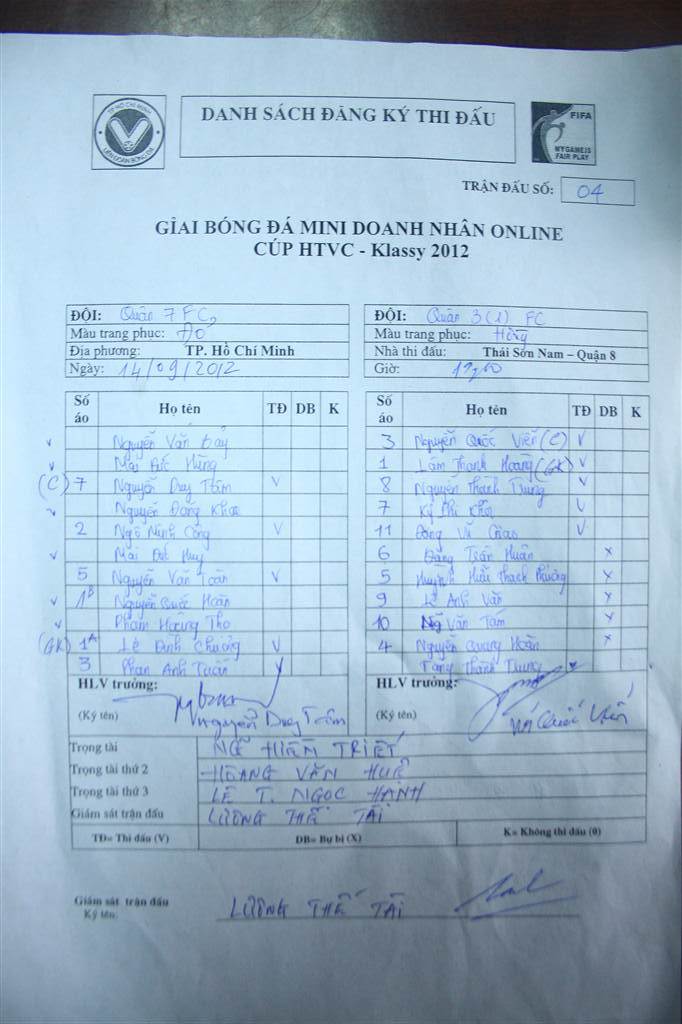 TP HỒ CHÍ MINH
LIÊN ĐOÀN BÓNG ĐÁ
DANH SÁCH ĐĂNG KÝ THI ĐẤU
FIFA
MY GAME IS
FAIR PLAY
TRẬN ĐẤU SỐ: 04
GIẢI BÓNG ĐÁ MINI DOANH NHÂN ONLINE
CÚP HTVC - Klassy 2012
ĐỘI: Quận 7 FC
Màu trang phục: Đỏ
Địa phương: TP. Hồ Chí Minh
Ngày: 14/09/2012
ĐỘI: Quận 3 (1) FC
Màu trang phục: Hồng
Nhà thi đấu: Thái Sơn Nam – Quận 8
Giờ:
Số áo Họ tên TĐ DB K
v Nguyễn Văn Bảy
v Mai Đức Hùng
(C) 7 Nguyễn Duy Tâm V
v Nguyễn Đăng Khoa
2 Ngô Minh Công V
v Mai Đức Huy
5 Nguyễn Văn Toàn V
v 1B Nguyễn Quốc Hoàn
v Phạm Hoàng Thọ
(GK) 1A Lê Đình Chưởng V
3 Phan Anh Tuấn V
HLV trưởng:
(Ký tên) Nguyễn Duy Tâm
Số áo Họ tên TĐ DB K
3 Nguyễn Quốc Viễn (C) V
1 Lâm Thanh Hoàng (GK) V
8 Nguyễn Thành Trung V
7 Kỷ Phi Kha V
11 Đồng Vũ Giao V
6 Đặng Trần Huân x
5 Huỳnh Hữu Thạch Phương x
9 Lê Anh Văn x
10 Ng Văn Tám x
4 Nguyễn Quang Hoàn x
Tăng Thành Trung
HLV trưởng:
(Ký tên) Quốc Viễn
Trọng tài NGÔ THIÊM TRIẾT
Trọng tài thứ 2 HOÀNG VĂN HUÊ
Trọng tài thứ 3 LÊ T. NGỌC HẠNH
Giám sát trận đấu LƯƠNG THẾ TÀI
TĐ= Thi đấu (V) DB= Dự bị (X) K= Không thi đấu (0)
Giám sát trận đấu
Ký tên: LƯƠNG THẾ TÀI